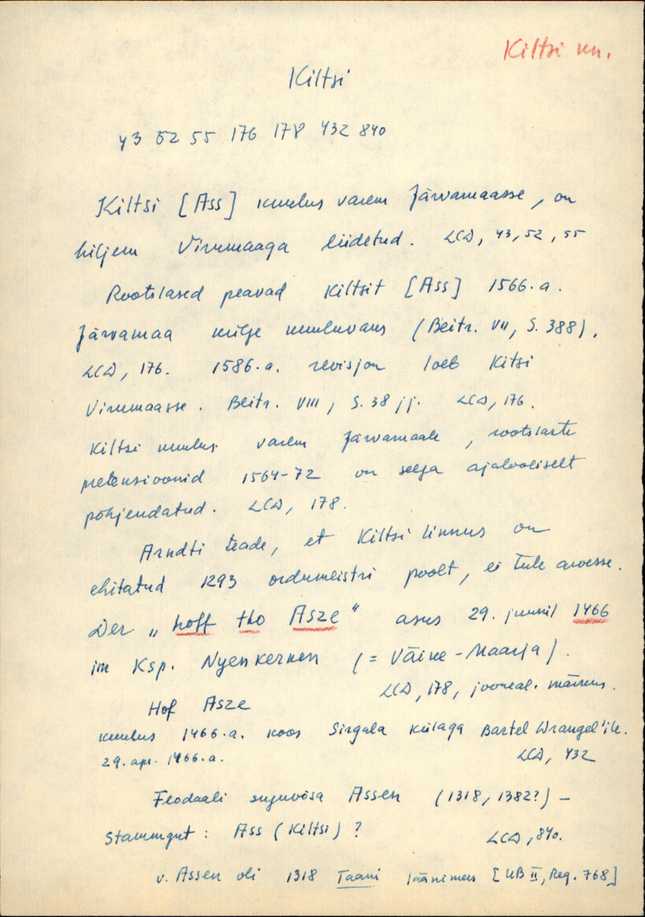 Kiltsi mn.
Kiltsi
43 52 55 176 178 432 840
Kiltsi [Ass] kuulus varem Järvamaasse, on
hiljem Virumaaga liidetud. LCD, 43, 52, 55
Rootslased peavad Kiltsit [Ass] 1566.a.
Järvamaa külge kuuluvaks (Beitr. VII, S. 388).
LCD, 176. 1586.a. revisjon loeb Kitsi
Virumaasse. Beitr. VIII, S. 38 jj. LCD, 176.
Kiltsi kuulus varem Järvamaale, rootslaste
pretensioonid 1564-72 on seega ajalooliselt
põhjendatud. LCD, 178.
Arndti teade, et Kiltsi linnus on
ehitatud 1293 ordumeistri poolt, ei tule arvesse.
Der „hoff tho Asze" asus 29. juunil 1466
im Ksp. Nyenkerken (= Väike-Maarja).
LCD, 178, jooneal. märkus.
Hof Asze
kuulus 1466.a. koos Sirgala külaga Bartel Wrangel'ile.
29. apr. 1466.a. LCD, 432
Feodaali suguvõsa Assen (1318, 1382?) –
Stammgut: Ass (Kiltsi)? LCD, 840.
v. Assen oli 1318 Taani läänimees [UB II, Reg. 768]